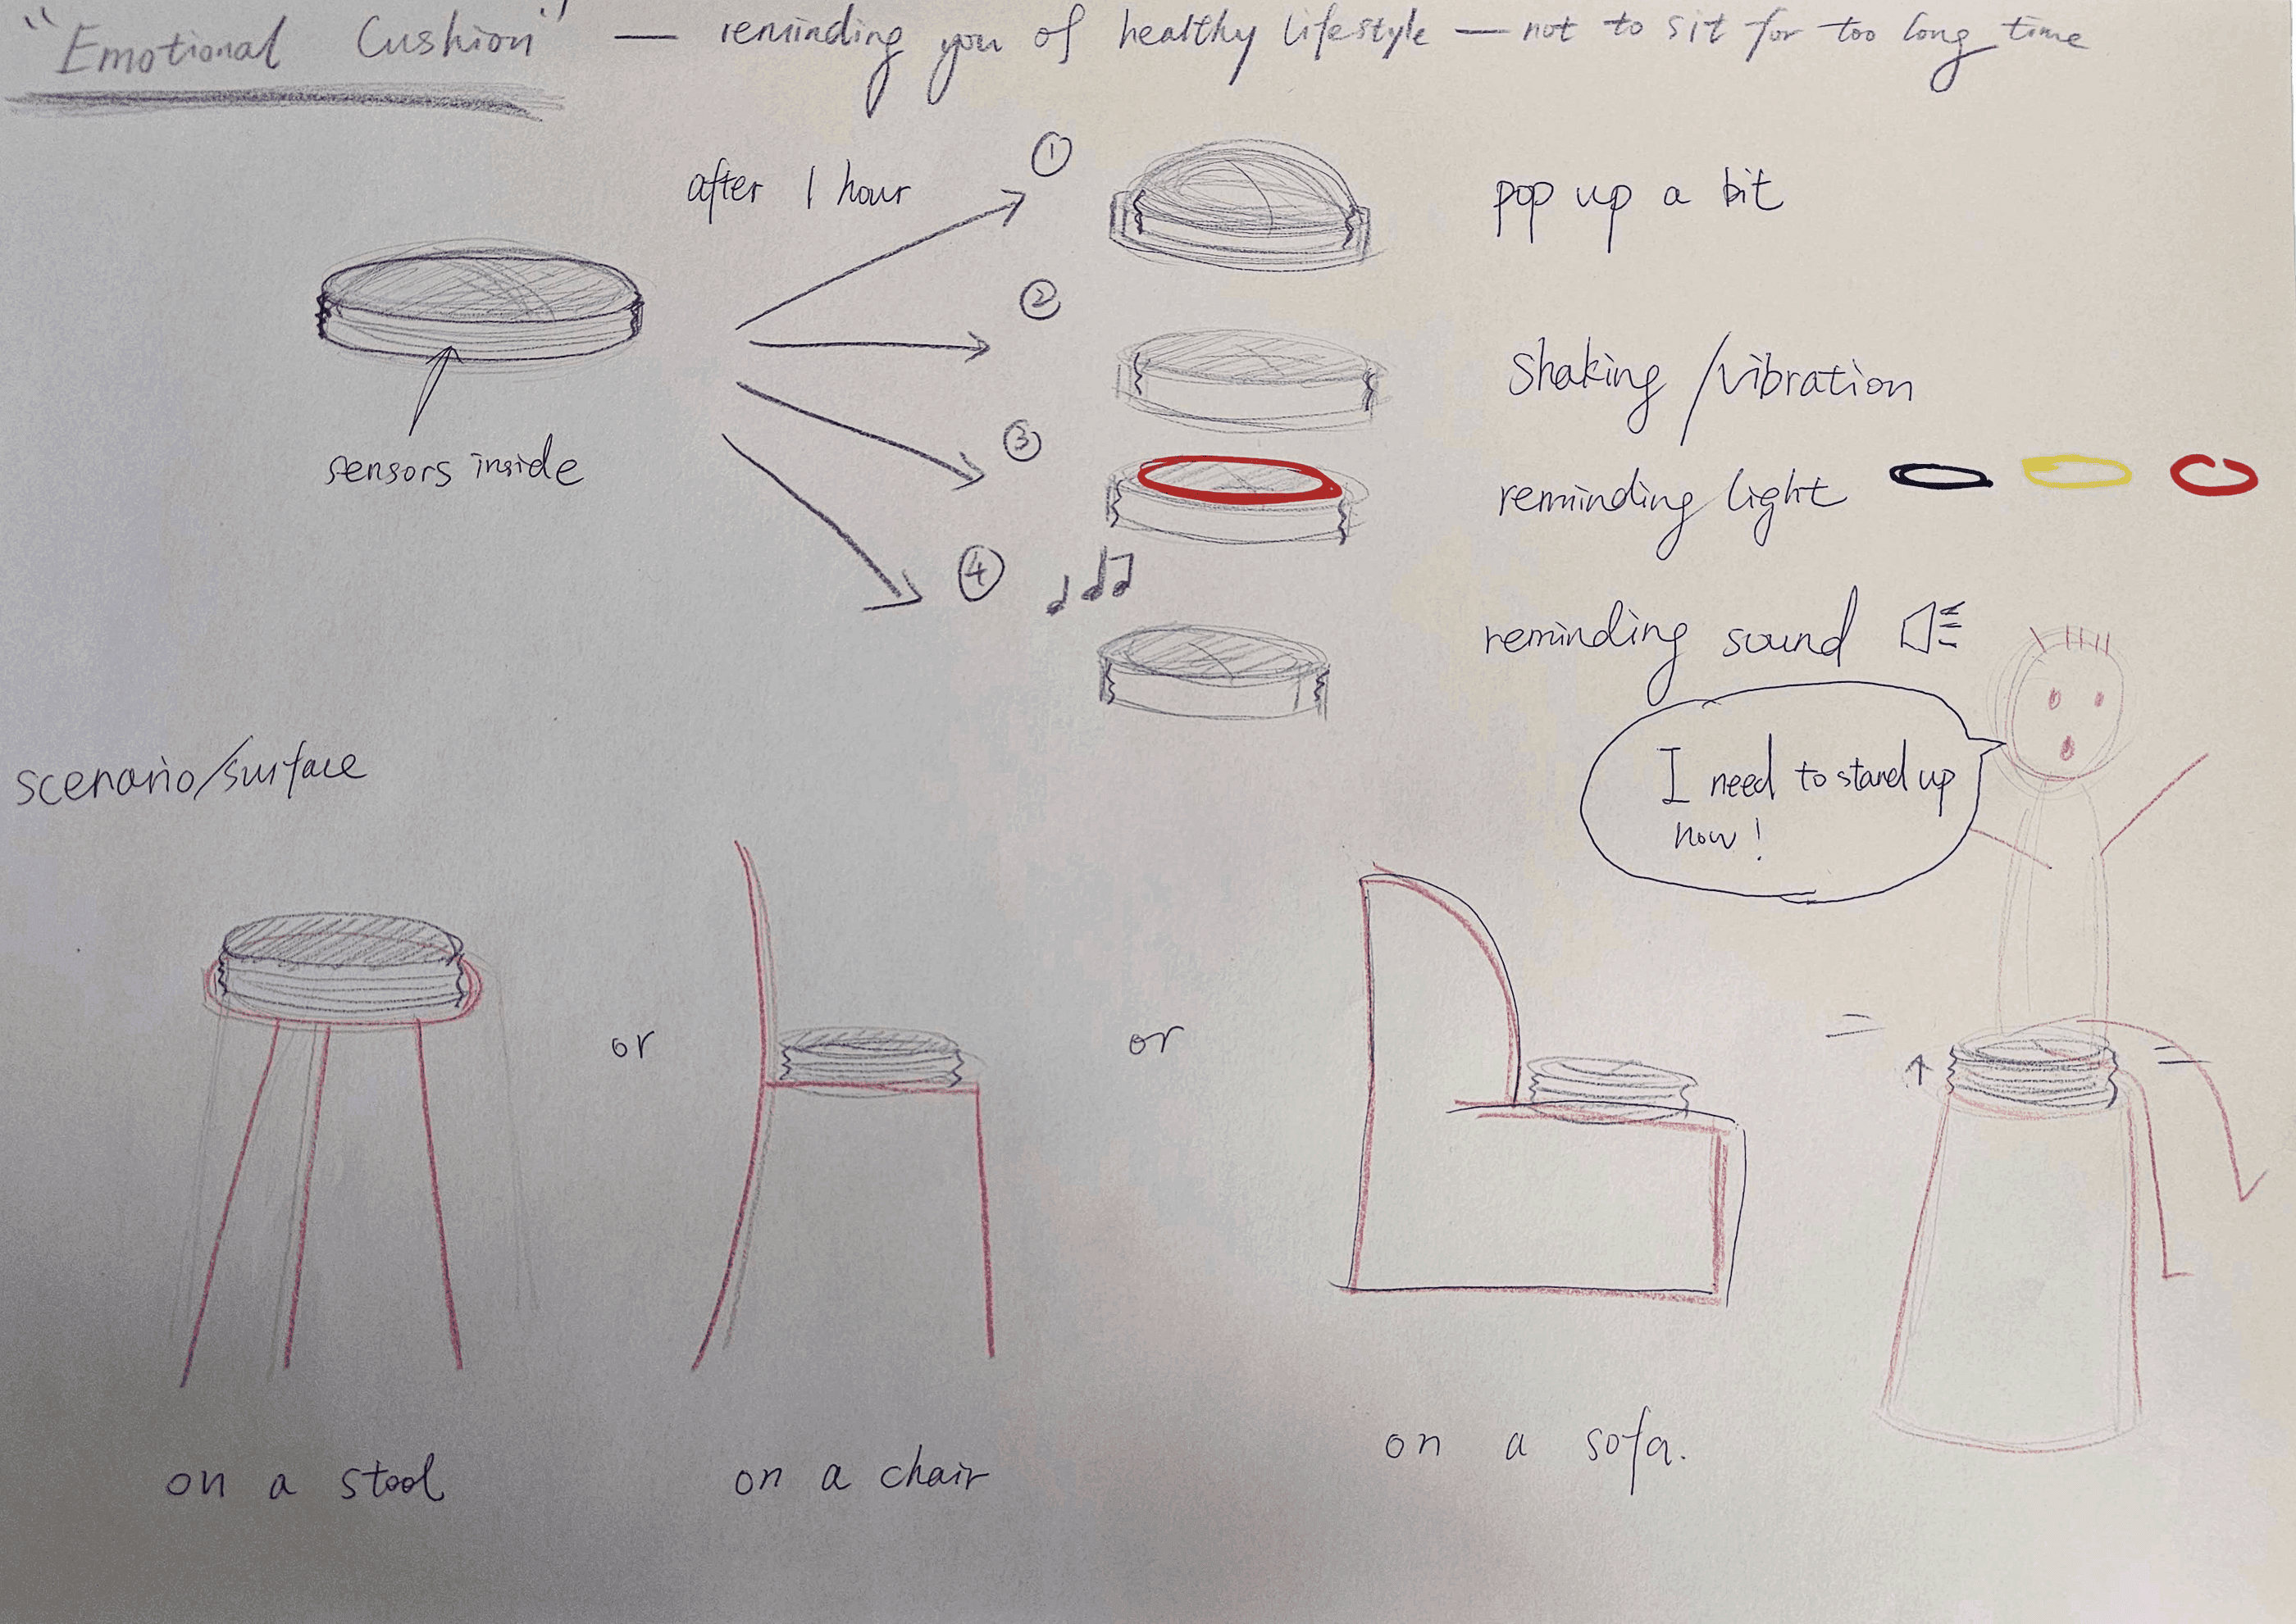 "Emotional Cushion" — reminding you of healthy lifestyle — not to sit for too long time
after 1 hour
① pop up a bit
② shaking/vibration
sensors inside
③ reminding light
④ reminding sound
I need to stand up
now!
scenario/surface
or
or
on a stool
on a chair
on a sofa.